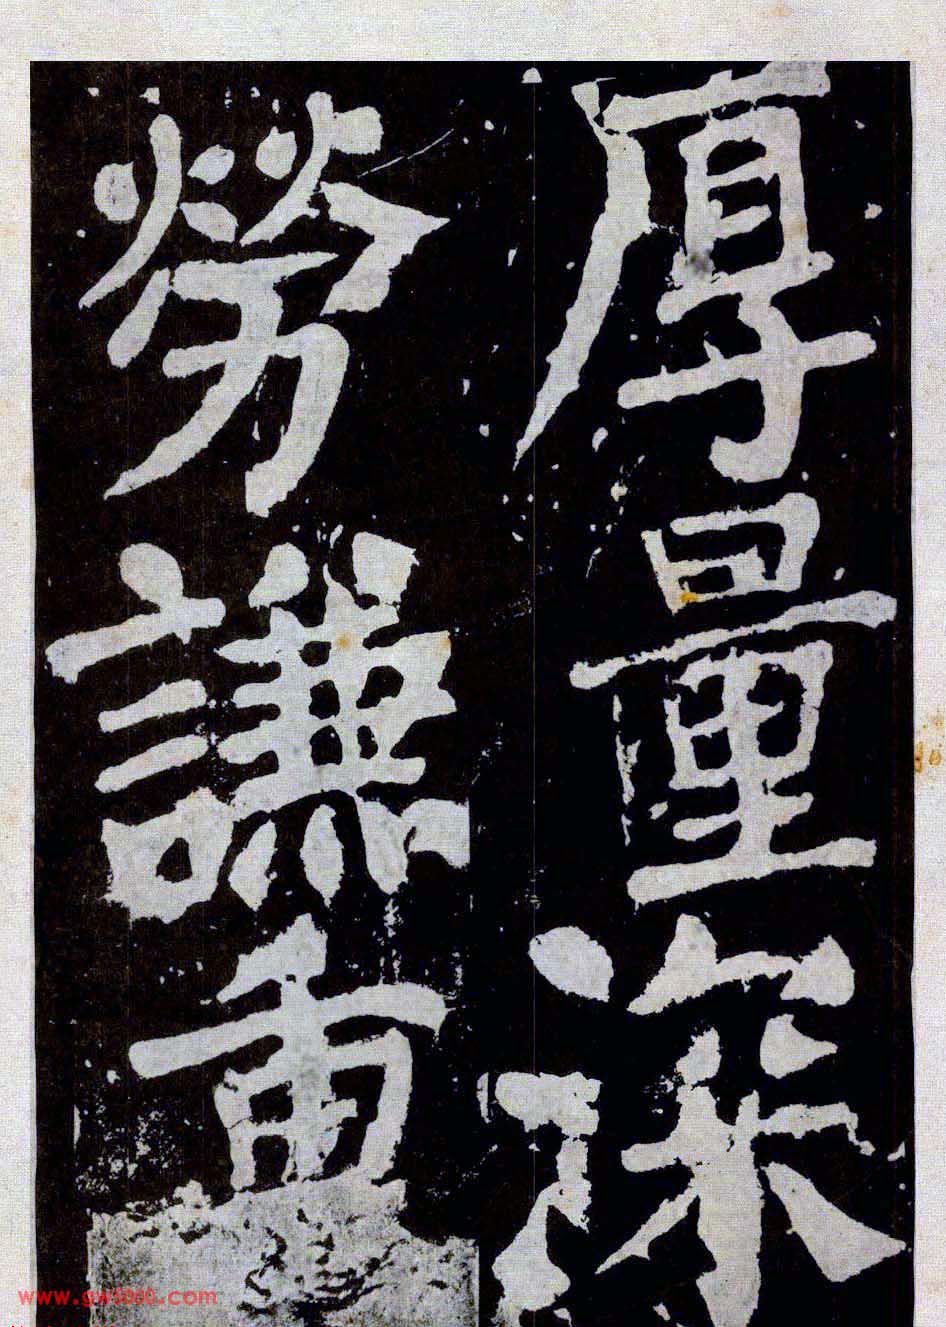 厚量深
勞謙
www.gw5000.com